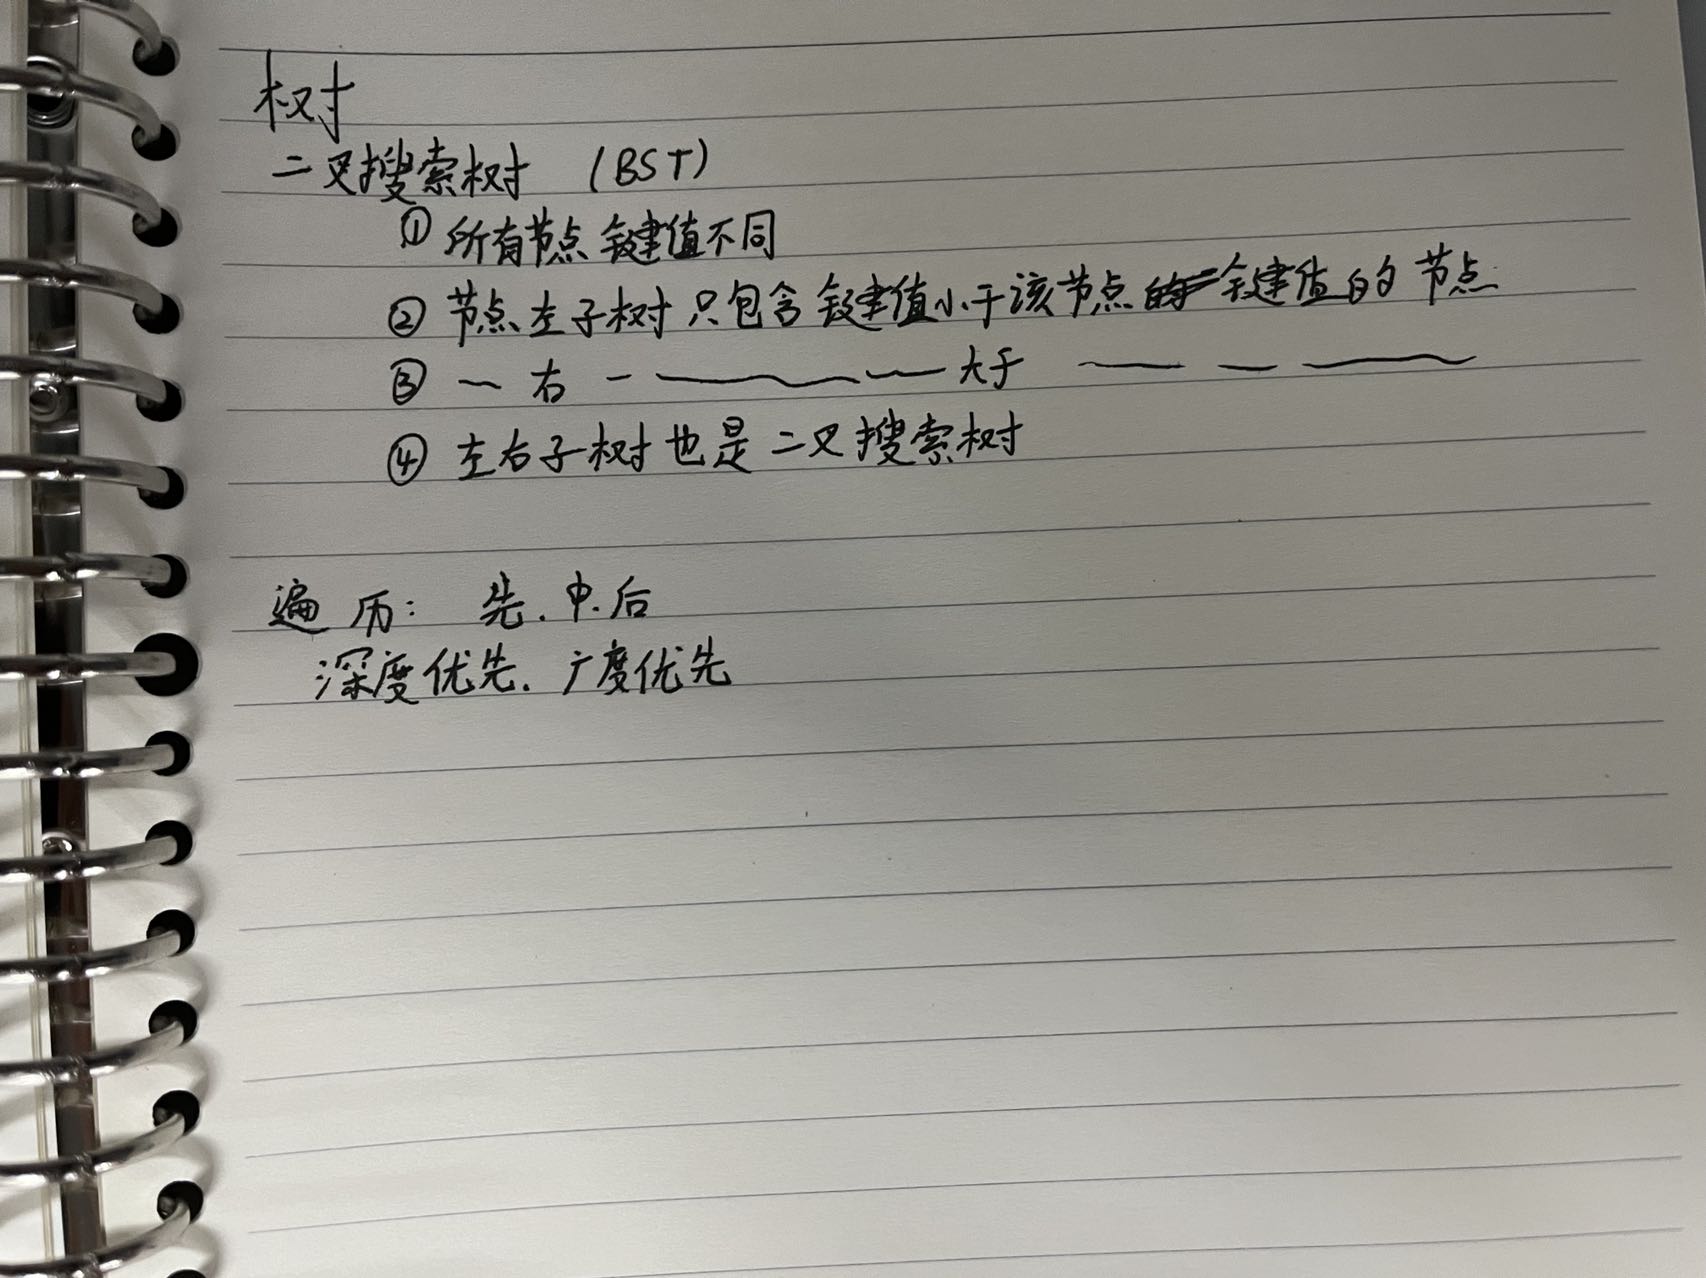 树
二叉搜索树 (BST)
① 所有节点键值不同
② 节点左子树只包含键值小于该节点的键值的节点
③ ~ 右 — ——— — 大于 —— — ———
④ 左右子树也是二叉搜索树
遍历: 先、中、后
深度优先、广度优先